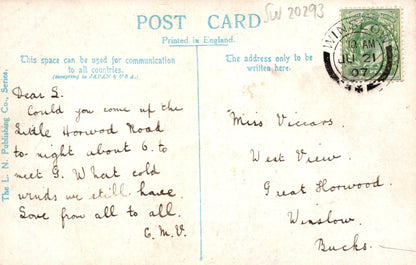 POST CARD
SW 20293
Printed in England.
This space can be used for communication
to all countries.
(Excepting to JAPAN & U.S.A.)
The address only to be
written here.
WINSLOW
10 AM
JU 21
07
The L. N. Publishing Co., Series.
Dear L.
Could you come up the
Little Horwood Road
to-night about 6. to
meet G. What cold
winds we still have.
Love from all to all.
C. M. V.
Miss Viccars.
West View.
Great Horwood.
Winslow.
Bucks.